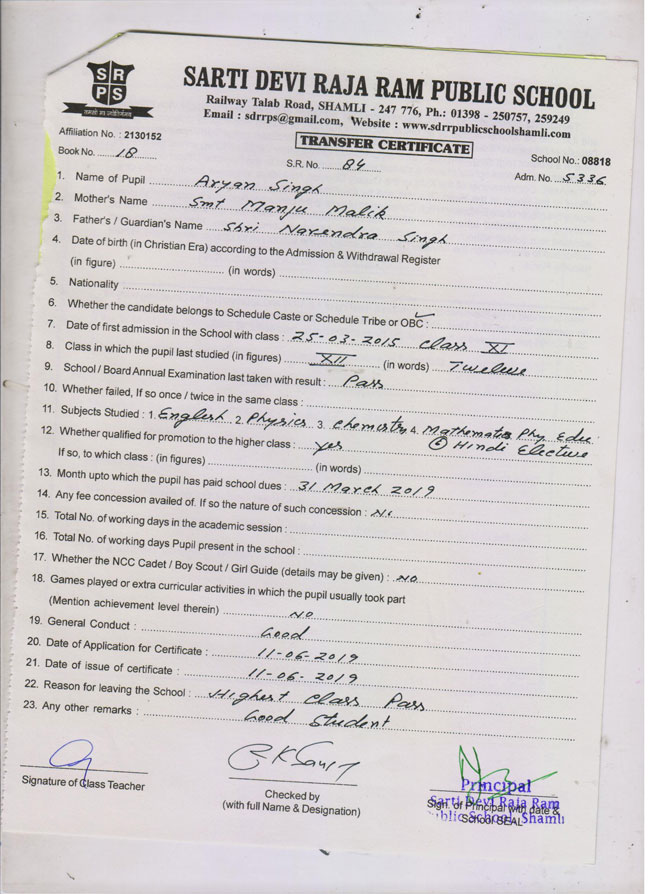 SRPS
तमसो मा ज्योतिर्गमय
SARTI DEVI RAJA RAM PUBLIC SCHOOL
Railway Talab Road, SHAMLI - 247 776, Ph.: 01398 - 250757, 259249
Email : sdrrps@gmail.com, Website : www.sdrrpublicschoolshamli.com
Affiliation No. : 2130152
TRANSFER CERTIFICATE
School No.: 08818
Book No. 18
S.R. No. 84
Adm. No. 5336
1. Name of Pupil Aryan Singh
2. Mother's Name Smt Manju Malik
3. Father's / Guardian's Name Shri Narendra Singh
4. Date of birth (in Christian Era) according to the Admission & Withdrawal Register
(in figure) (in words)
5. Nationality
6. Whether the candidate belongs to Schedule Caste or Schedule Tribe or OBC : ✓
7. Date of first admission in the School with class : 25-03-2015 Class XI
8. Class in which the pupil last studied (in figures) XII (in words) Twelve
9. School / Board Annual Examination last taken with result : Pass
10. Whether failed, If so once / twice in the same class :
11. Subjects Studied : 1. English 2. Physics 3. Chemistry 4. Mathematics Phy. Edu
12. Whether qualified for promotion to the higher class : yes ⑥ Hindi Elective
If so, to which class : (in figures) (in words)
13. Month upto which the pupil has paid school dues : 31 March 2019
14. Any fee concession availed of. If so the nature of such concession : No
15. Total No. of working days in the academic session :
16. Total No. of working days Pupil present in the school :
17. Whether the NCC Cadet / Boy Scout / Girl Guide (details may be given) : NO
18. Games played or extra curricular activities in which the pupil usually took part
(Mention achievement level therein) NO
19. General Conduct : Good
20. Date of Application for Certificate : 11-06-2019
21. Date of issue of certificate : 11-06-2019
22. Reason for leaving the School : Highest Class Pass
23. Any other remarks : Good Student
Signature of Class Teacher
Checked by
(with full Name & Designation)
Principal
Sarti Devi Raja Ram
Public School, Shamli
Sign. of Principal with date &
School SEAL